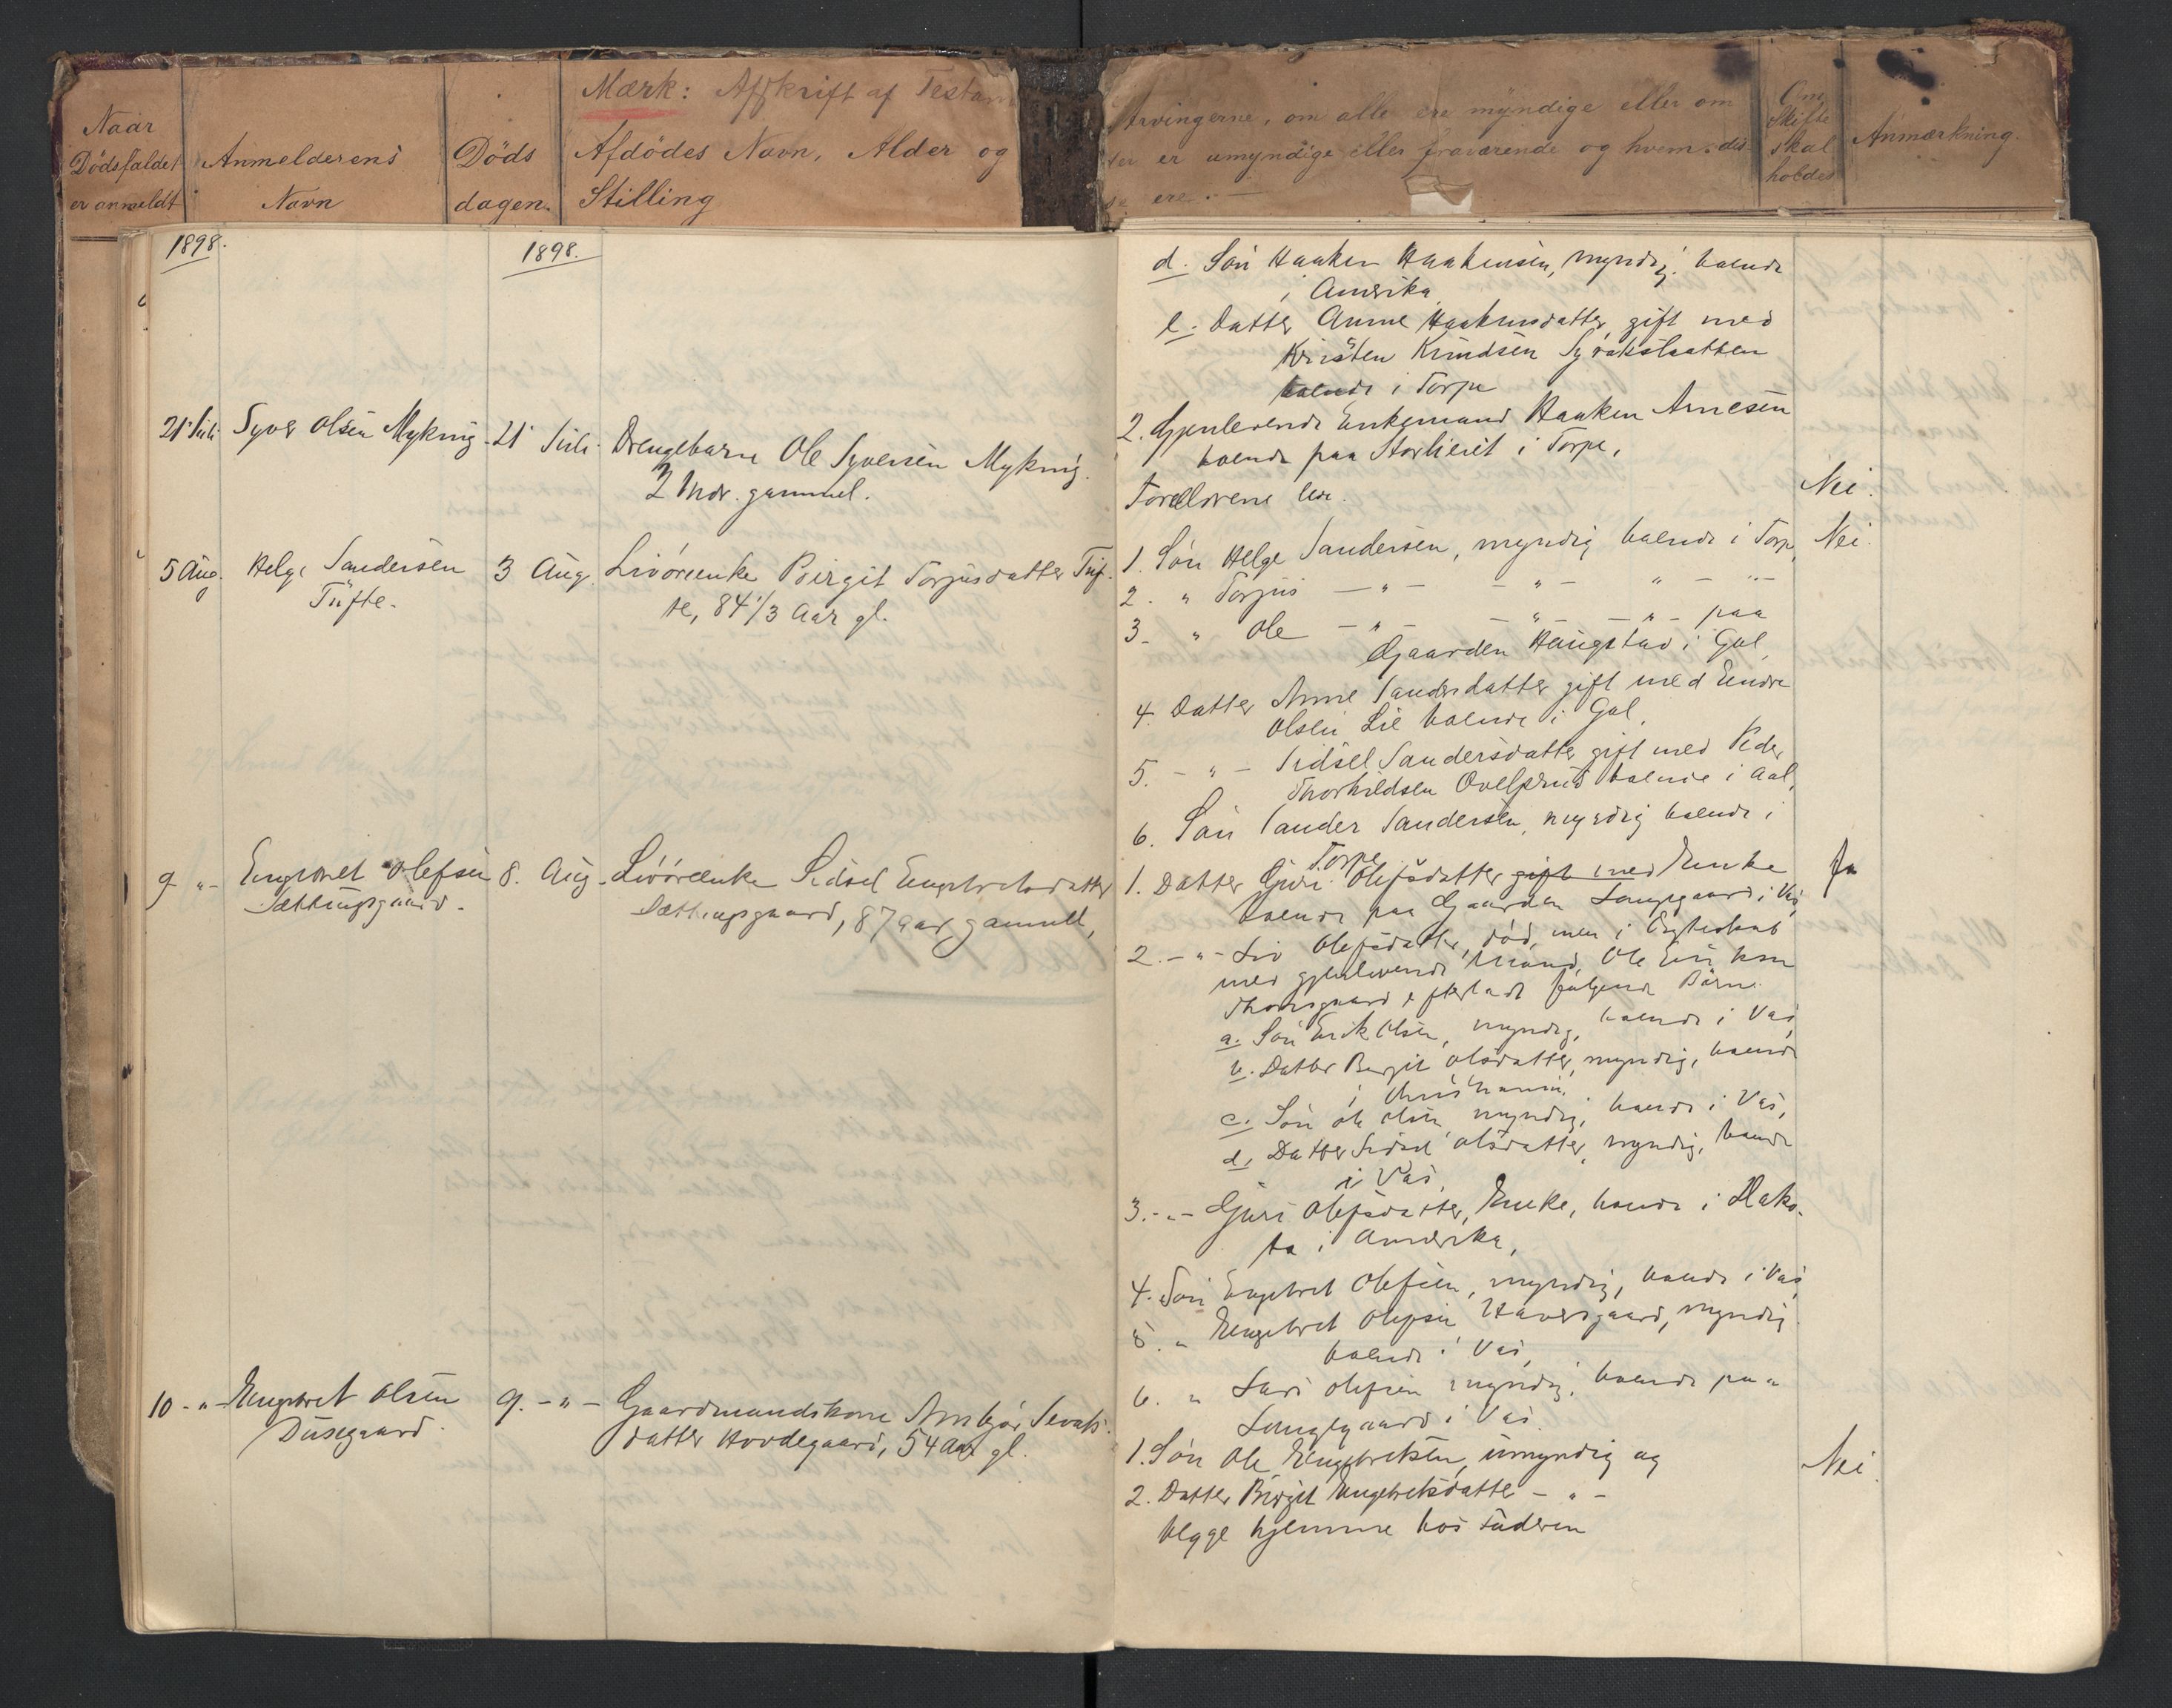 Mærk: Afskrift af Testam
Naar
Dödsfaldet
er anmeldt
Anmelderens
Navn
Döds
dagen.
Afdödes Navn, Alder og
Stilling
Arvingerne, om alle ere myndige eller om
er umyndige eller fraværende og hvem dis
se ere.
Om
Skifte
skal
holdes
Anmærkning.
1898.
1898.
d. Søn Haaken Haakensen, myndig, boende
i Amerika
e. Datter Anne Haakensdatter, gift med
Kristen Knudsen
boende i Torpe
2. Gjenlevende Enkemand Haaken Arnesen
boende paa i Torpe,
21' Juli
Syver Olsen Myking
21' Juli
Drengebarn Ole Syversen Myking.
2 Mdr. gammel.
Forældrene lever.
Nei.
5 Aug.
Helge Sandersen
Tufte.
3 Aug.
Livörenke Birgit Torjusdatter Tuf-
te, 84 1/3 Aar gl.
1. Søn Helge Sandersen, myndig boende i Torpe,
2. " Torjus — " — — " — " — " —
3. " Ole — " — — " — " — paa
Gaarden Haugstad i Gol,
4. Datter Anne Sandersdatter gift med Endre
Olsen Lie boende i Gol,
5. — " — Sidsel Sandersdatter gift med Peder
Thorkildsen boende i Aal,
6. Søn Sander Sandersen, myndig boende i
Torpe.
Nei.
9 " —
Engebret Olefsen
Sættungsgaard.
8. Aug.
Livörenke Sidsel Engebretsdatter
Sættungsgaard, 87 aar gammel,
1. Datter Guri Olefsdatter gift med Enke
boende paa Gaarden Langegaard i Vas,
2. — " — Liv Olefsdatter, død, men i Ægteskab
med gjenlevende Mand, Ole Eriksen
Thorsgaard efterladt følgende Børn:
a. Søn Erik Olsen, myndig, boende i Vas,
b. Datter Birgit Olsdatter, myndig, boende
i Christiania,
c. Søn Ole Olsen, myndig, boende i Vas,
d. Datter Sidsel Olsdatter, myndig, boende
i Vas,
3. — " — Guri Olefsdatter, Enke, boende i Dako-
ta i Amerika,
4. Søn Engebret Olefsen, myndig, boende i Vas,
5. " Engebret Olefsen Haversgaard, myndig
boende i Vas,
6. " Lars Olefsen myndig, boende paa
Langegaard i Vas.
Ja
10 — " —
Engebret Olsen
Dusegaard.
9. — " —
Gaardmandskone Annbjør Sevats-
datter Hovdegaard, 54 Aar gl.
1. Søn Ole Engebretsen, umyndig og
2. Datter Birgit Engebretsdatter — " —
begge hjemme hos Faderen
Nei.